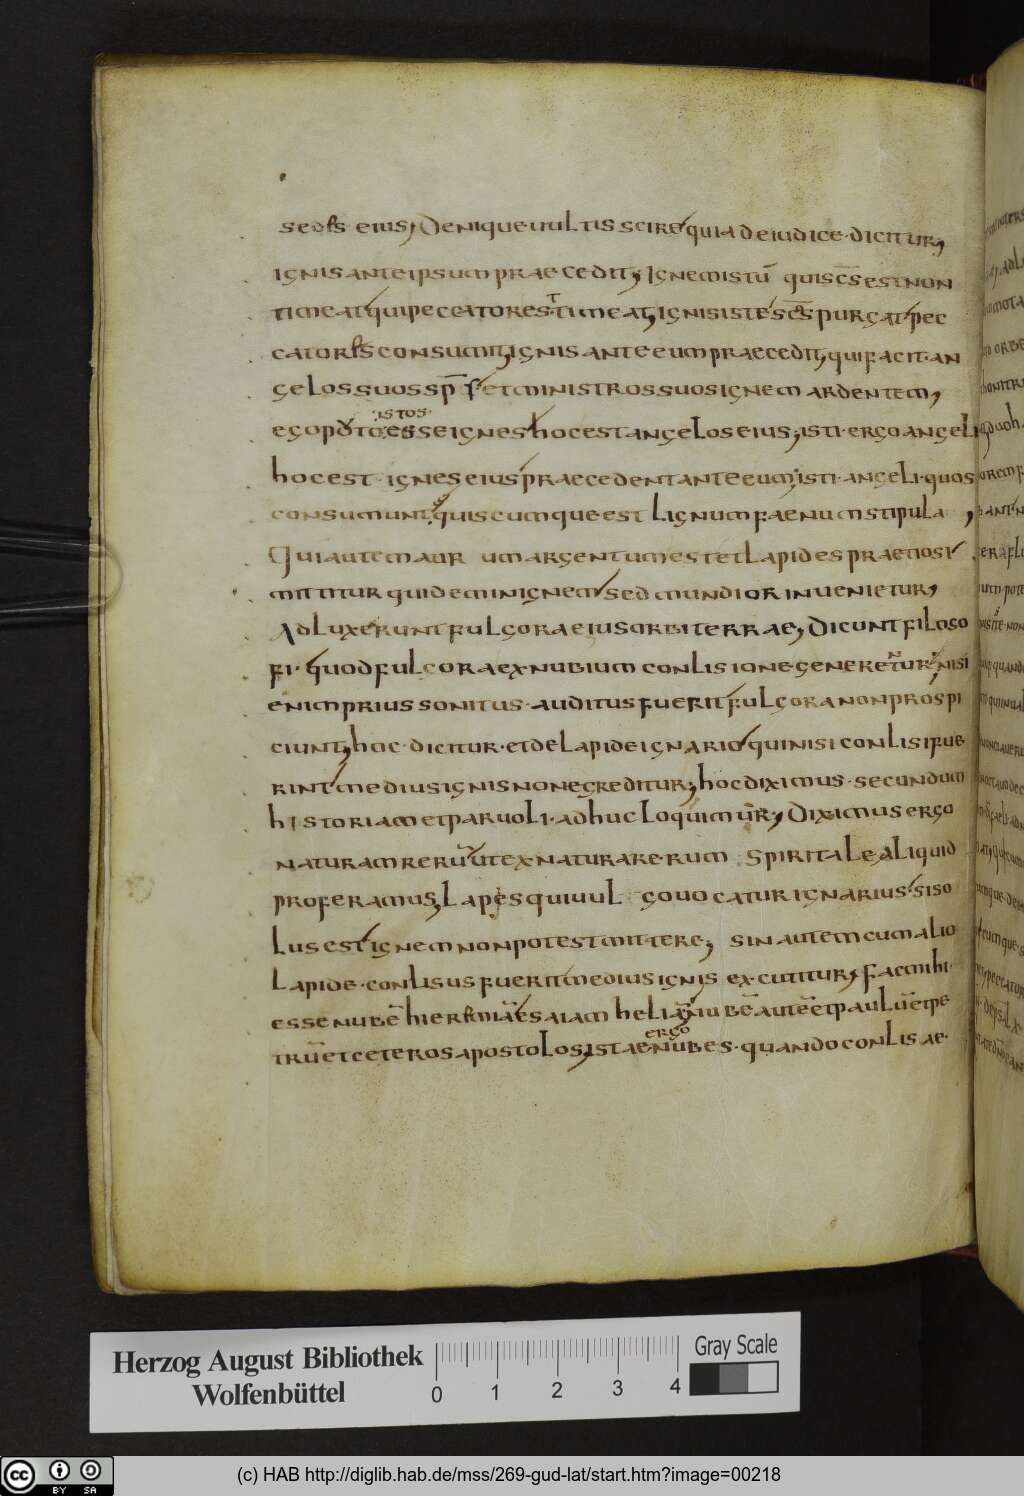 sedis eius, Denique uultis scire quia de iudice dicitur,
ignis ante ipsum praecedit, Ignem istū quis sc̄s est non
timeat qui peccatores timeat, ignis iste sc̄s purgat pec
catores consumit, ignis ante eum praecedit, qui facit an
gelos suos sp̄s et ministros suos ignem ardentem,
istos
ego puto esse ignes hoc est angelos eius, isti ergo angeli
hoc est ignes eius praecedent ante eum, isti angeli quos
consumunt, quiscumque est lignum faenum stipula,
Qui autem aurum argentum est et lapides praetiosi
mittitur quidem in ignem sed mundior inuenietur,
Adluxerunt fulgora eius orbi terrae, Dicunt filoso
fi quod fulgora ex nubium conlisione generentur, nisi
enim prius sonitus auditus fuerit fulgora non prospi
ciunt, hoc dicitur et de lapide ignario qui nisi conlisi fue
rint medius ignis non egreditur, hoc diximus secundum
historiam et paruoli adhuc loquimur, Diximus ergo
naturam rerū ut ex natura rerum spiritale aliquid
proferamus, Lapes qui uulgo uocatur ignarius si so
lus est ignem non potest mittere, sin autem cum alio
lapide conlisus fuerit medius ignis excutitur, fac mihi
esse nubē hieremiā esaiam heliam, nubē autē et paulū et pe
ergo
trū et ceteros apostolos, istae nubes quando conlisae
Herzog August Bibliothek
Wolfenbüttel
0 1 2 3 4
Gray Scale
cc BY SA
(c) HAB http://diglib.hab.de/mss/269-gud-lat/start.htm?image=00218